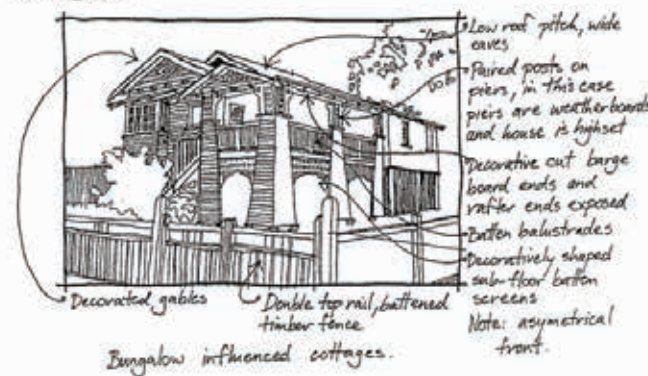 Low roof pitch, wide
eaves
Paired posts on
piers, in this case
piers are weatherboard
and house is highset
Decorative cut barge
board ends and
rafter ends exposed
Batten balustrades
Decoratively shaped
sub-floor batten
screens
Note: asymetrical
front.
Decorated gables
Double top rail, battened
timber fence
Bungalow influenced cottages.